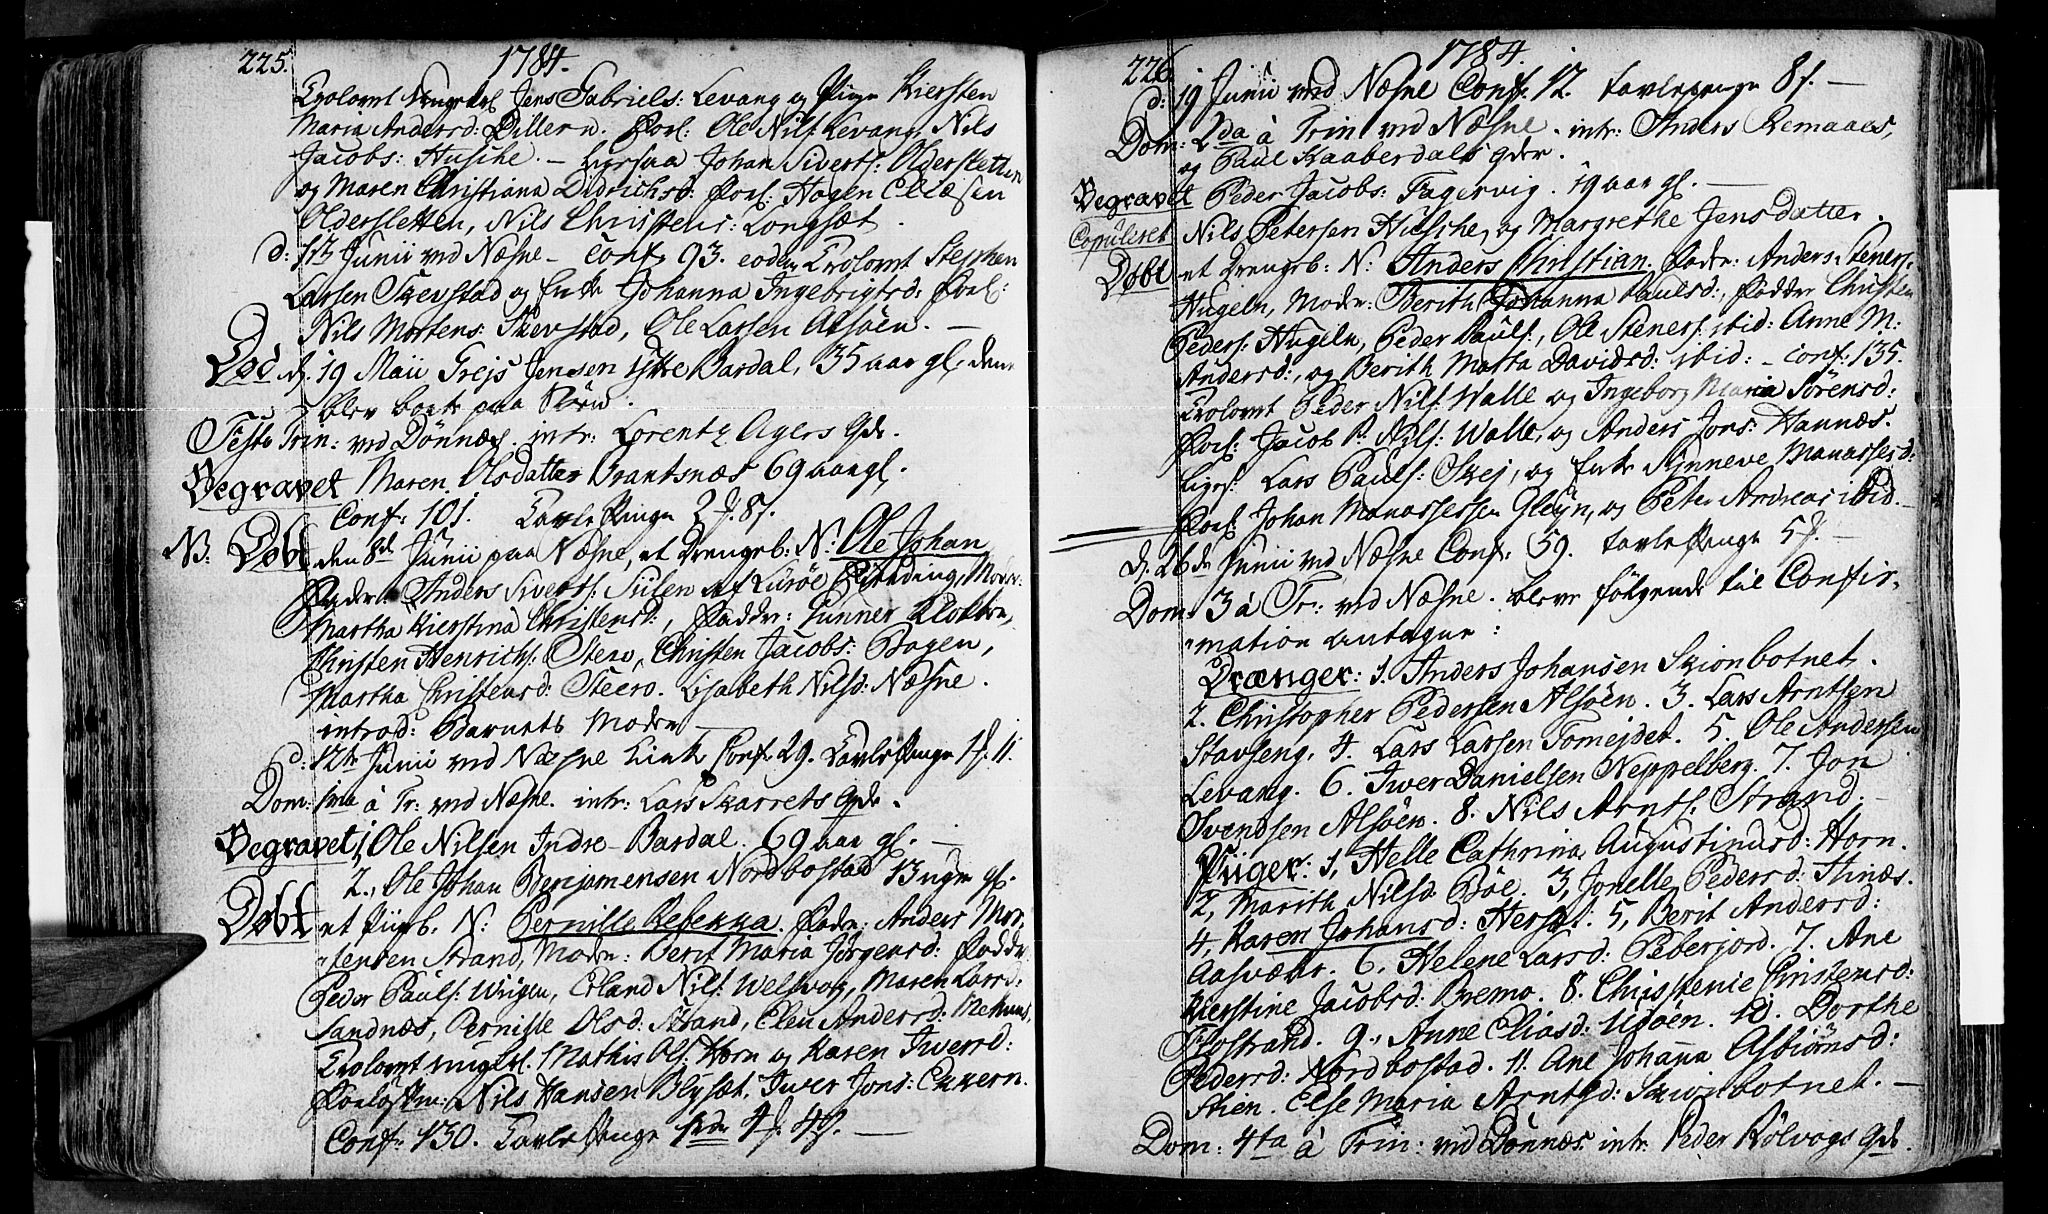 225. 1784.
Trolovet Ungkarl Jens Gabriels: Levang og Pige Kiersten
Maria Andersd: Dillern. Forl: Ole Nils: Levang, Nils
Jacobs: Husbye. – Ligesaa Johan Siverts: Oldersletten
og Maren Christiana Didrichsd: Forl: Hagen Ellæsen
Oldersletten, Nils Christens: Longsæt.
d: 13 Junii ved Næsne – Conf: 93. eodem Trolovet Stephan
Larsen Skevstad og Enke Johanna Ingebrigtsd: Forl:
Nils Mortens: Skevstad, Ole Larsen Alsøen. –
Død d. 19 Maii Jens Jensen Ytre Bardal, 35 aar gl. denne
blev borte paa Søen.
Festo Trin: ved Dønnæs. intr: Lorentz Agers Qde.
Begravet Maren Olsdatter Brantsnæs 69 aar gl.
Conf: 101. Tavle Penge 2 f. 8 s.
NB: Døbt den 8d Junii paa Næsne, et Drengeb: N: Ole Johan
Fader: Anders Siverts: Siilen af Lurøe Moder:
Martha Kierstina Christensd:, Faddr: Gunner Klokker,
Christen Henrichs: Steen, Christen Jacobs: Bogen,
Martha Christensd: Steero. Lisabeth Nilsd: Næsne.
introd: Barnets Moder –
d: 12te Junii ved Næsne Kirke Conf: 29. Tavle Penge 1 f. 11.
Dom: 1ma à Tr: ved Næsne. intr: Lars Skarrets Qde.
Begravet 1, Ole Nilsen Indre-Bardal 69 aar gl. –
2., Ole Johan Benjamensen Nordbostad 13 uger gl.
Døbt et Pigeb. N: Pernille Rebekka. Fader: Anders Mor-
tensen Strand, Moder: Berit Maria Jørgensd: Faddr:
Peder Pauls: Wiigen, Erland Nils: Welsvog, Maren Larsd:
Sandnæs, Pernille Olsd: Strand, Elen Andersd:
Trolovet ungkl. Mathis Ols: Horn og Karen Iwersd:
Forlovere: Nils Hansen Blysæt, Iwer Jons: Exxern.
Conf: 130. Tavle Penge 4 f. 4 s. –
226. 1784.
d: 19 Junii ved Næsne Conf: 12. Tavlepenge 8 s. –
Dom: 2da à Trin ved Næsne. intr: Anders Remaaes,
og Paul Kaaberdals Qder.
Begravet Peder Jacobs: Fagervig. 19 aar gl. –
Copuleret Nils Petersen Husbye, og Margrethe Jensdatter.
Døbt et Drengeb: N: Anders Christian. Fader: Anders Steners:
Hugeln, Moder: Berith Johanna Paulsd:, Faddr: Christen
Peders: Hugeln, Peder Pauls:, Ole Steners: ibid: Anne M:
Andersd:, og Berith Marta Davidsd: ibid: – Conf: 135.
Trolovet Peder Nils: Walle og Ingeborg Maria Sörensd:
Forl: Jacob P. Nils: Walle, og Anders Jons: Hannæs.
Liges: Lars Pauls: Skej, og Enke Synneve Manassesd:
Forl: Johan Manassessen Gleyn, og Peter Andreas: ibid. –
d. 26de Junii ved Næsne Conf: 59. Tavle Penge 5 s. –
Dom: 3 à Tr: ved Næsne. bleve følgende til Confir-
mation antagne:
Drænger: 1. Anders Johansen Skionbotnet.
2. Christopher Pedersen Alsöen. 3. Lars Arntsen
Stavseng. 4. Lars Larsen Tomejdet. 5. Ole Andersen
Levang. 6. Iwer Danielsen Neppelberg. 7. Jon
Svendsen Alsöen. 8. Nils Arnts: Strand. –
Piiger: 1, Helle Cathrina Augustinusd: Horn.
2, Marith Nilsd: Böe. 3, Jonelle Pedersd: Stinæs.
4. Karen Johansd: Hersæt. 5, Berit Andersd:
Aasvær. 6. Helene Larsd: Peberjord. 7. Ane
Kierstine Jacobsd: Bremo. 8. Christenie Christensd:
Flostrand. 9., Anne Eliasd: Ugöen. 10. Dorthe
Pedersd: Nordbostad. 11. Ane Johanna Asbiörnsd:
Stien. Else Maria Arntsd: Skionbotnet. –
Dom: 4ta à Trin: ved Dönnæs intr: Peder Rölvogs Qde.